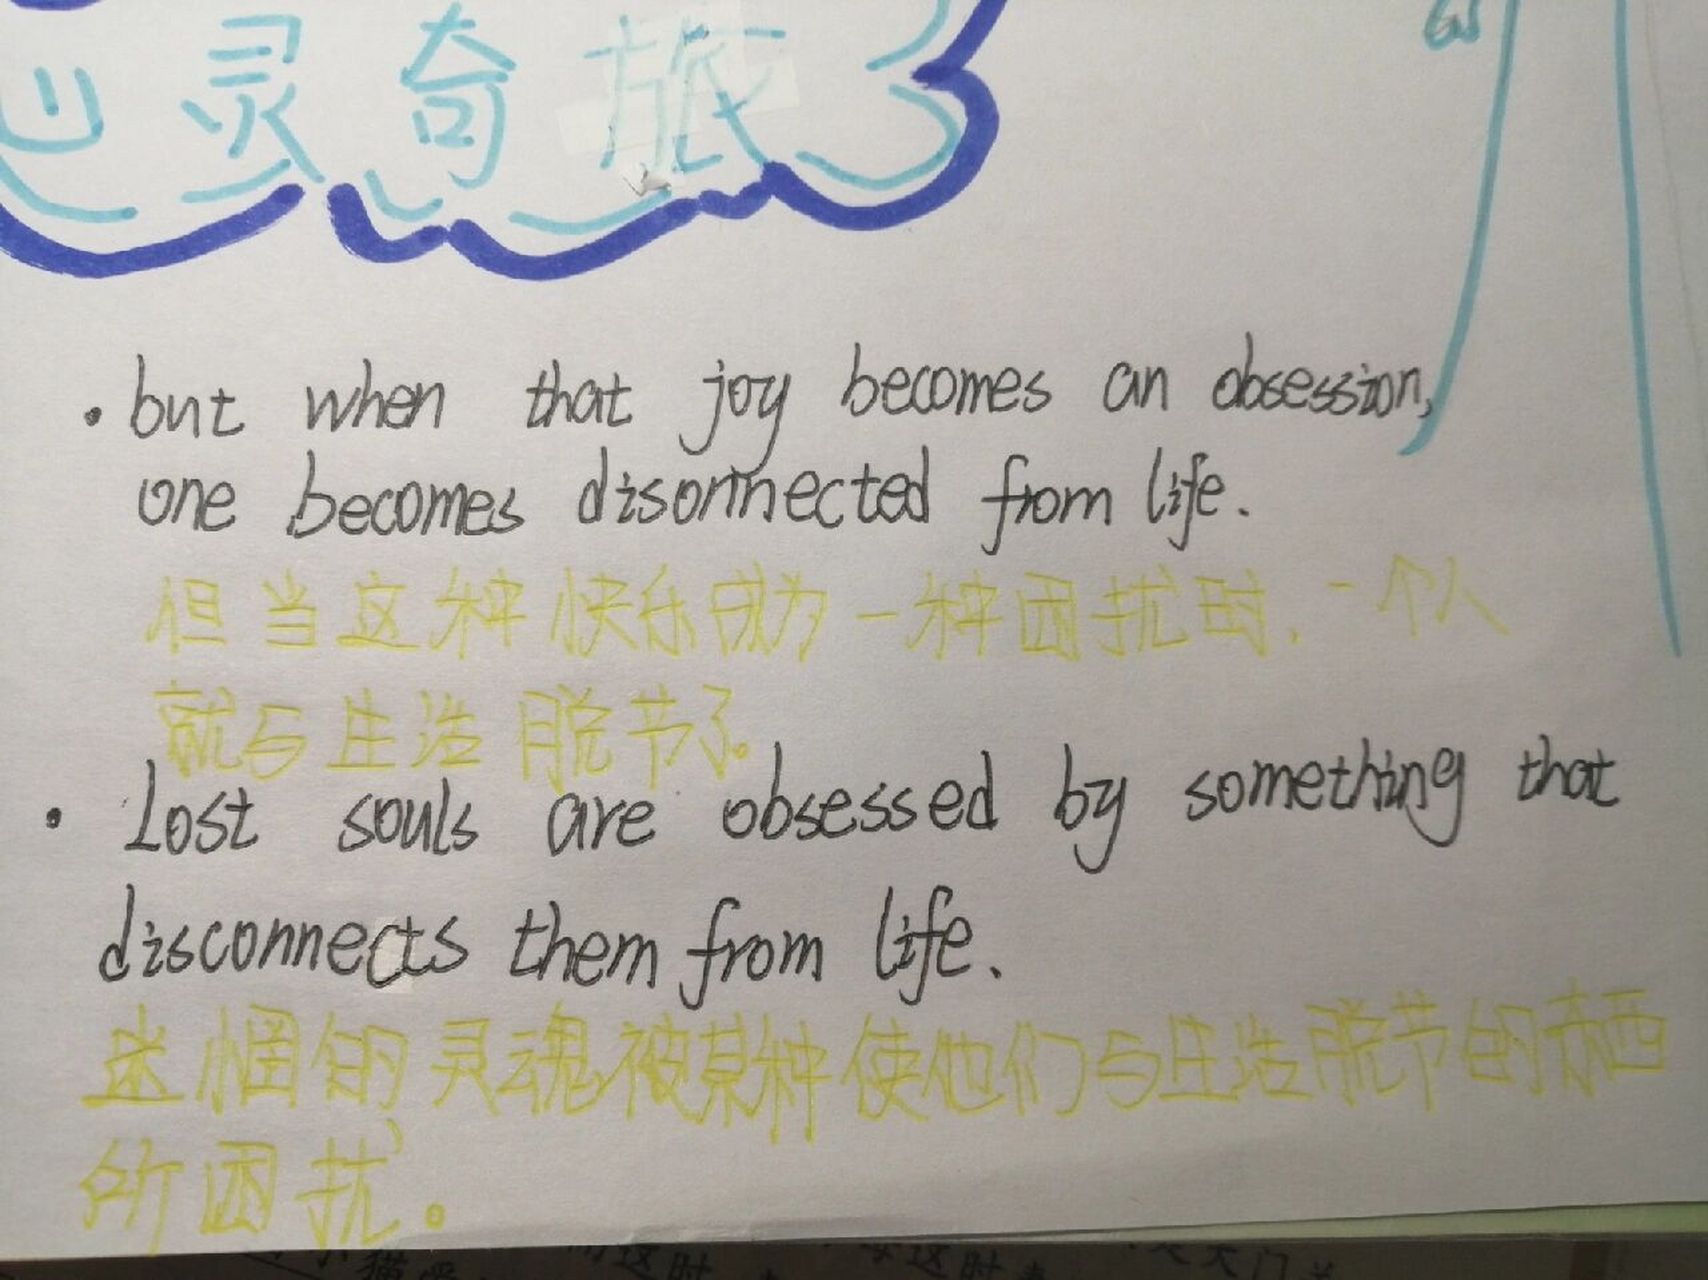 心灵奇旅
• but when that joy becomes an obsession,
one becomes disonnected from life.
但当这种快乐成为一种困扰时，一个人
就与生活脱节了。
• Lost souls are obsessed by something that
disconnects them from life.
迷惘的灵魂被某种使他们与生活脱节的东西
所困扰。